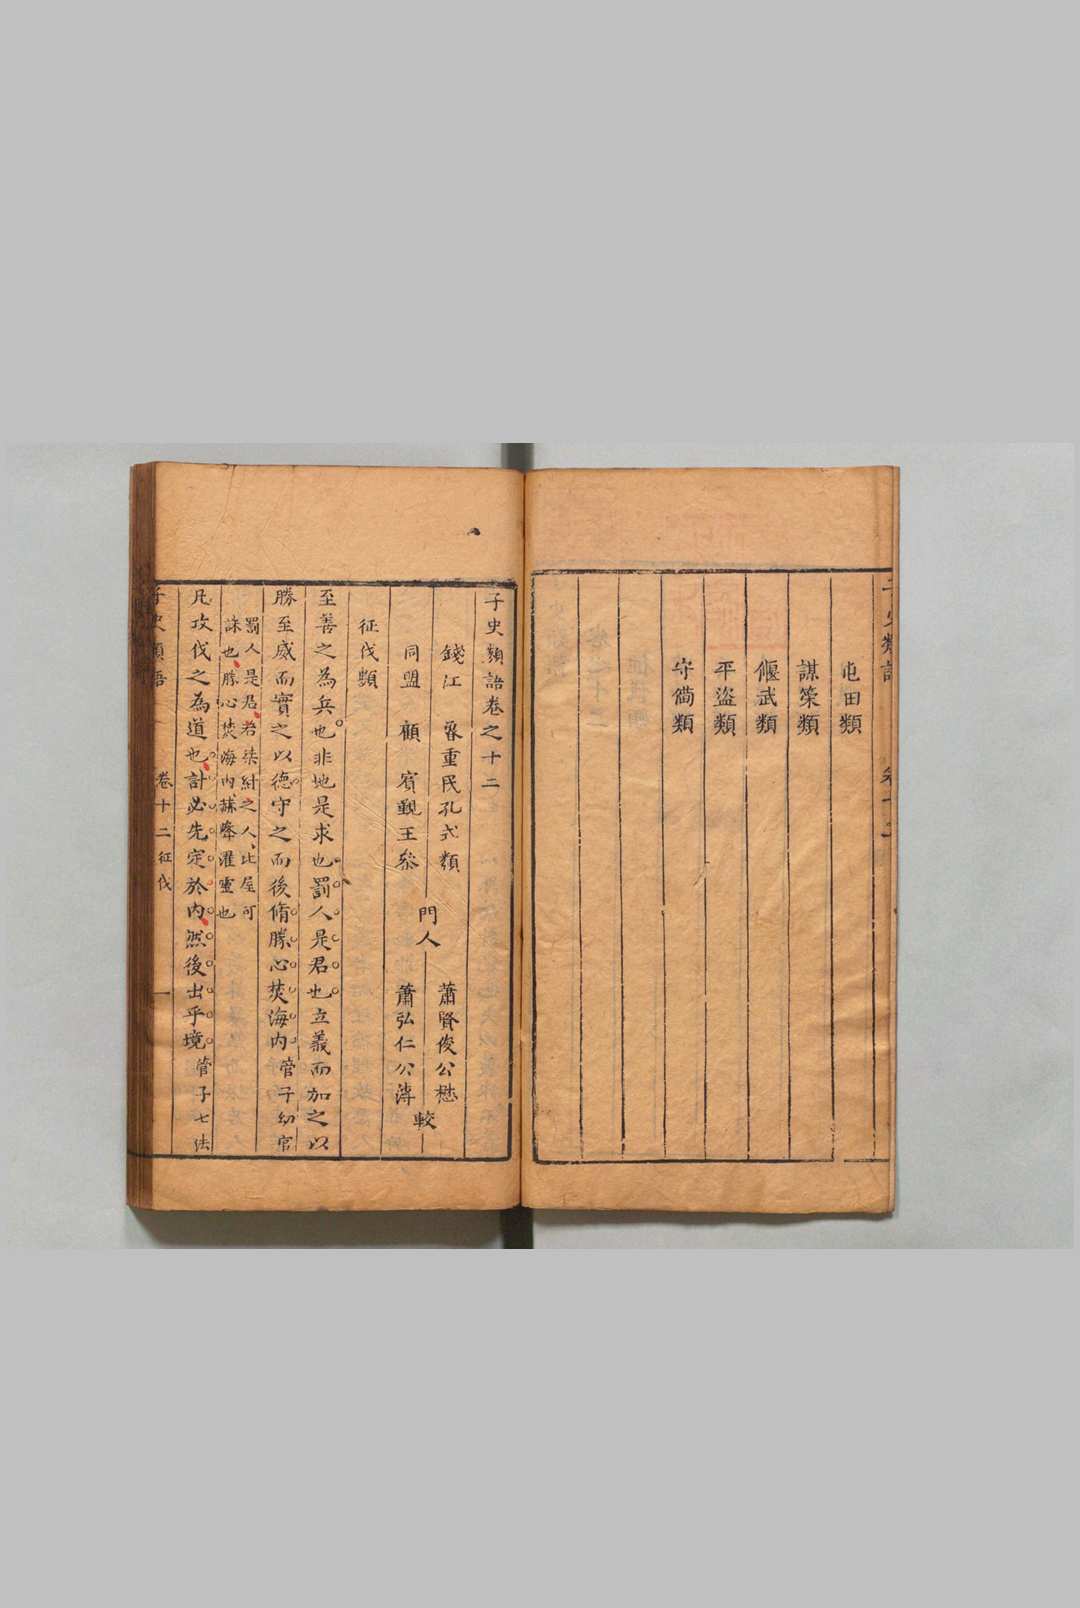 屯田類
謀筞類
偃武類
平盜類
守僃類
子史類語卷之十二
錢江
重民孔式類
同盟　顧　賓觀王叅
門人
蕭賢俊公懋
蕭弘仁公溥
較
征伐類
至善之為兵也非地是求也罰人是君也立義而加之以
勝至威而實之以德守之而後脩勝心焚海内管子幼官
罰人是君若桀紂之人比屋可
誅也勝心焚海内
凡攻伐之為道也計必先定於内然後出乎境管子七法
子史類語　卷十二征伐　一